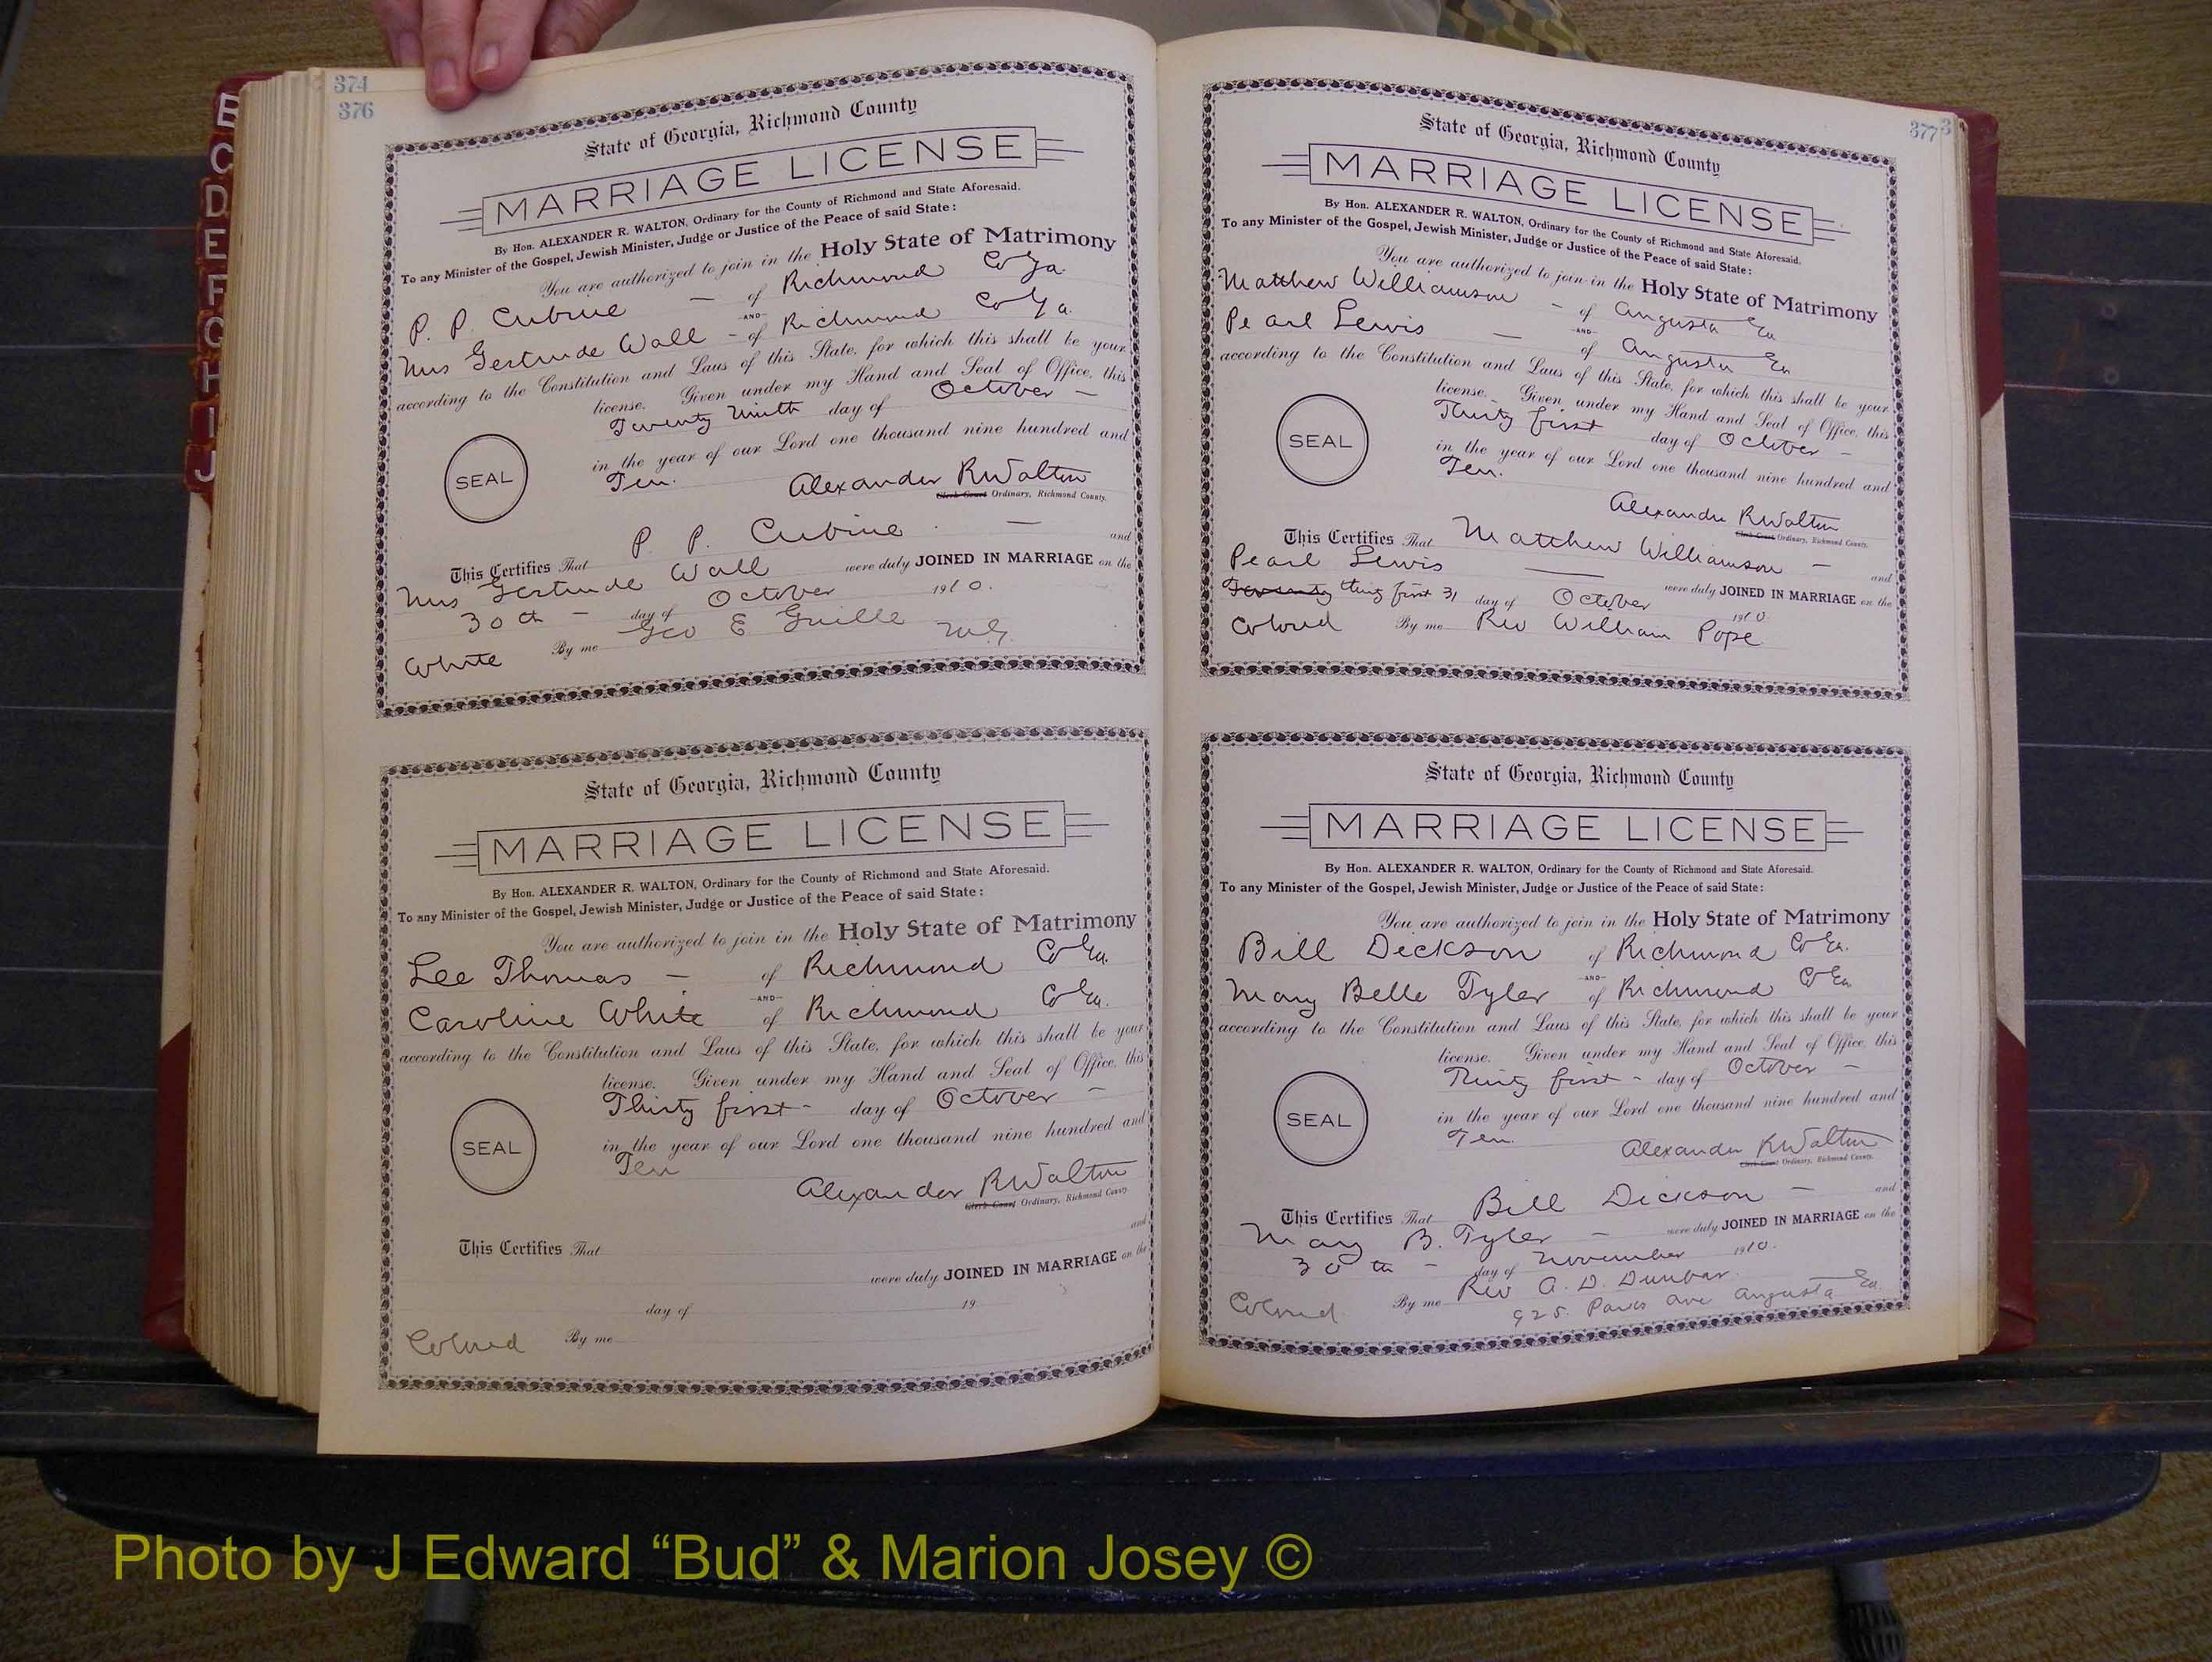 B
C
D
E
F
G
H
I
J
374
376
State of Georgia, Richmond County
MARRIAGE LICENSE
By Hon. ALEXANDER R. WALTON, Ordinary for the County of Richmond and State Aforesaid.
To any Minister of the Gospel, Jewish Minister, Judge or Justice of the Peace of said State:
You are authorized to join in the Holy State of Matrimony
P. P. Cubine — of Richmond Co Ga.
-AND-
Mrs Gertrude Wall - of Richmond Co Ga.
according to the Constitution and Laws of this State, for which this shall be your
license. Given under my Hand and Seal of Office, this
Twenty Ninth day of October -
in the year of our Lord one thousand nine hundred and
Ten.
SEAL
Alexander R Walton
Clerk Court Ordinary, Richmond County.
This Certifies That P. P. Cubine — and
Mrs Gertrude Wall were duly JOINED IN MARRIAGE on the
30th - day of October 1910.
White By me Geo E Guille M.G.
State of Georgia, Richmond County
MARRIAGE LICENSE
By Hon. ALEXANDER R. WALTON, Ordinary for the County of Richmond and State Aforesaid.
To any Minister of the Gospel, Jewish Minister, Judge or Justice of the Peace of said State:
You are authorized to join in the Holy State of Matrimony
Lee Thomas - of Richmond Co Ga.
-AND-
Caroline White of Richmond Co Ga.
according to the Constitution and Laws of this State, for which this shall be your
license. Given under my Hand and Seal of Office, this
Thirty first - day of October -
in the year of our Lord one thousand nine hundred and
Ten
SEAL
Alexander R Walton
Clerk Court Ordinary, Richmond County.
This Certifies That and
were duly JOINED IN MARRIAGE on the
day of 19
Colored By me
377
State of Georgia, Richmond County
MARRIAGE LICENSE
By Hon. ALEXANDER R. WALTON, Ordinary for the County of Richmond and State Aforesaid.
To any Minister of the Gospel, Jewish Minister, Judge or Justice of the Peace of said State:
You are authorized to join in the Holy State of Matrimony
Matthew Williamson - of Augusta Ga
-AND-
Pearl Lewis — of Augusta Ga
according to the Constitution and Laws of this State, for which this shall be your
license. Given under my Hand and Seal of Office, this
Thirty first day of October -
in the year of our Lord one thousand nine hundred and
Ten.
SEAL
Alexander R Walton
Clerk Court Ordinary, Richmond County.
This Certifies That Matthew Williamson - and
Pearl Lewis — were duly JOINED IN MARRIAGE on the
thirty first 31 day of October 1910.
Colored By me Rev William Pope
State of Georgia, Richmond County
MARRIAGE LICENSE
By Hon. ALEXANDER R. WALTON, Ordinary for the County of Richmond and State Aforesaid.
To any Minister of the Gospel, Jewish Minister, Judge or Justice of the Peace of said State:
You are authorized to join in the Holy State of Matrimony
Bill Dickson of Richmond Co Ga.
-AND-
Mary Belle Tyler of Richmond Co Ga
according to the Constitution and Laws of this State, for which this shall be your
license. Given under my Hand and Seal of Office, this
Thirty first - day of October -
in the year of our Lord one thousand nine hundred and
Ten.
SEAL
Alexander R Walton
Clerk Court Ordinary, Richmond County.
This Certifies That Bill Dickson - and
Mary B. Tyler - were duly JOINED IN MARRIAGE on the
30th - day of November 1910.
Colored By me Rev A. D. Dunbar
925 Parks ave Augusta Ga
Photo by J Edward “Bud” & Marion Josey ©